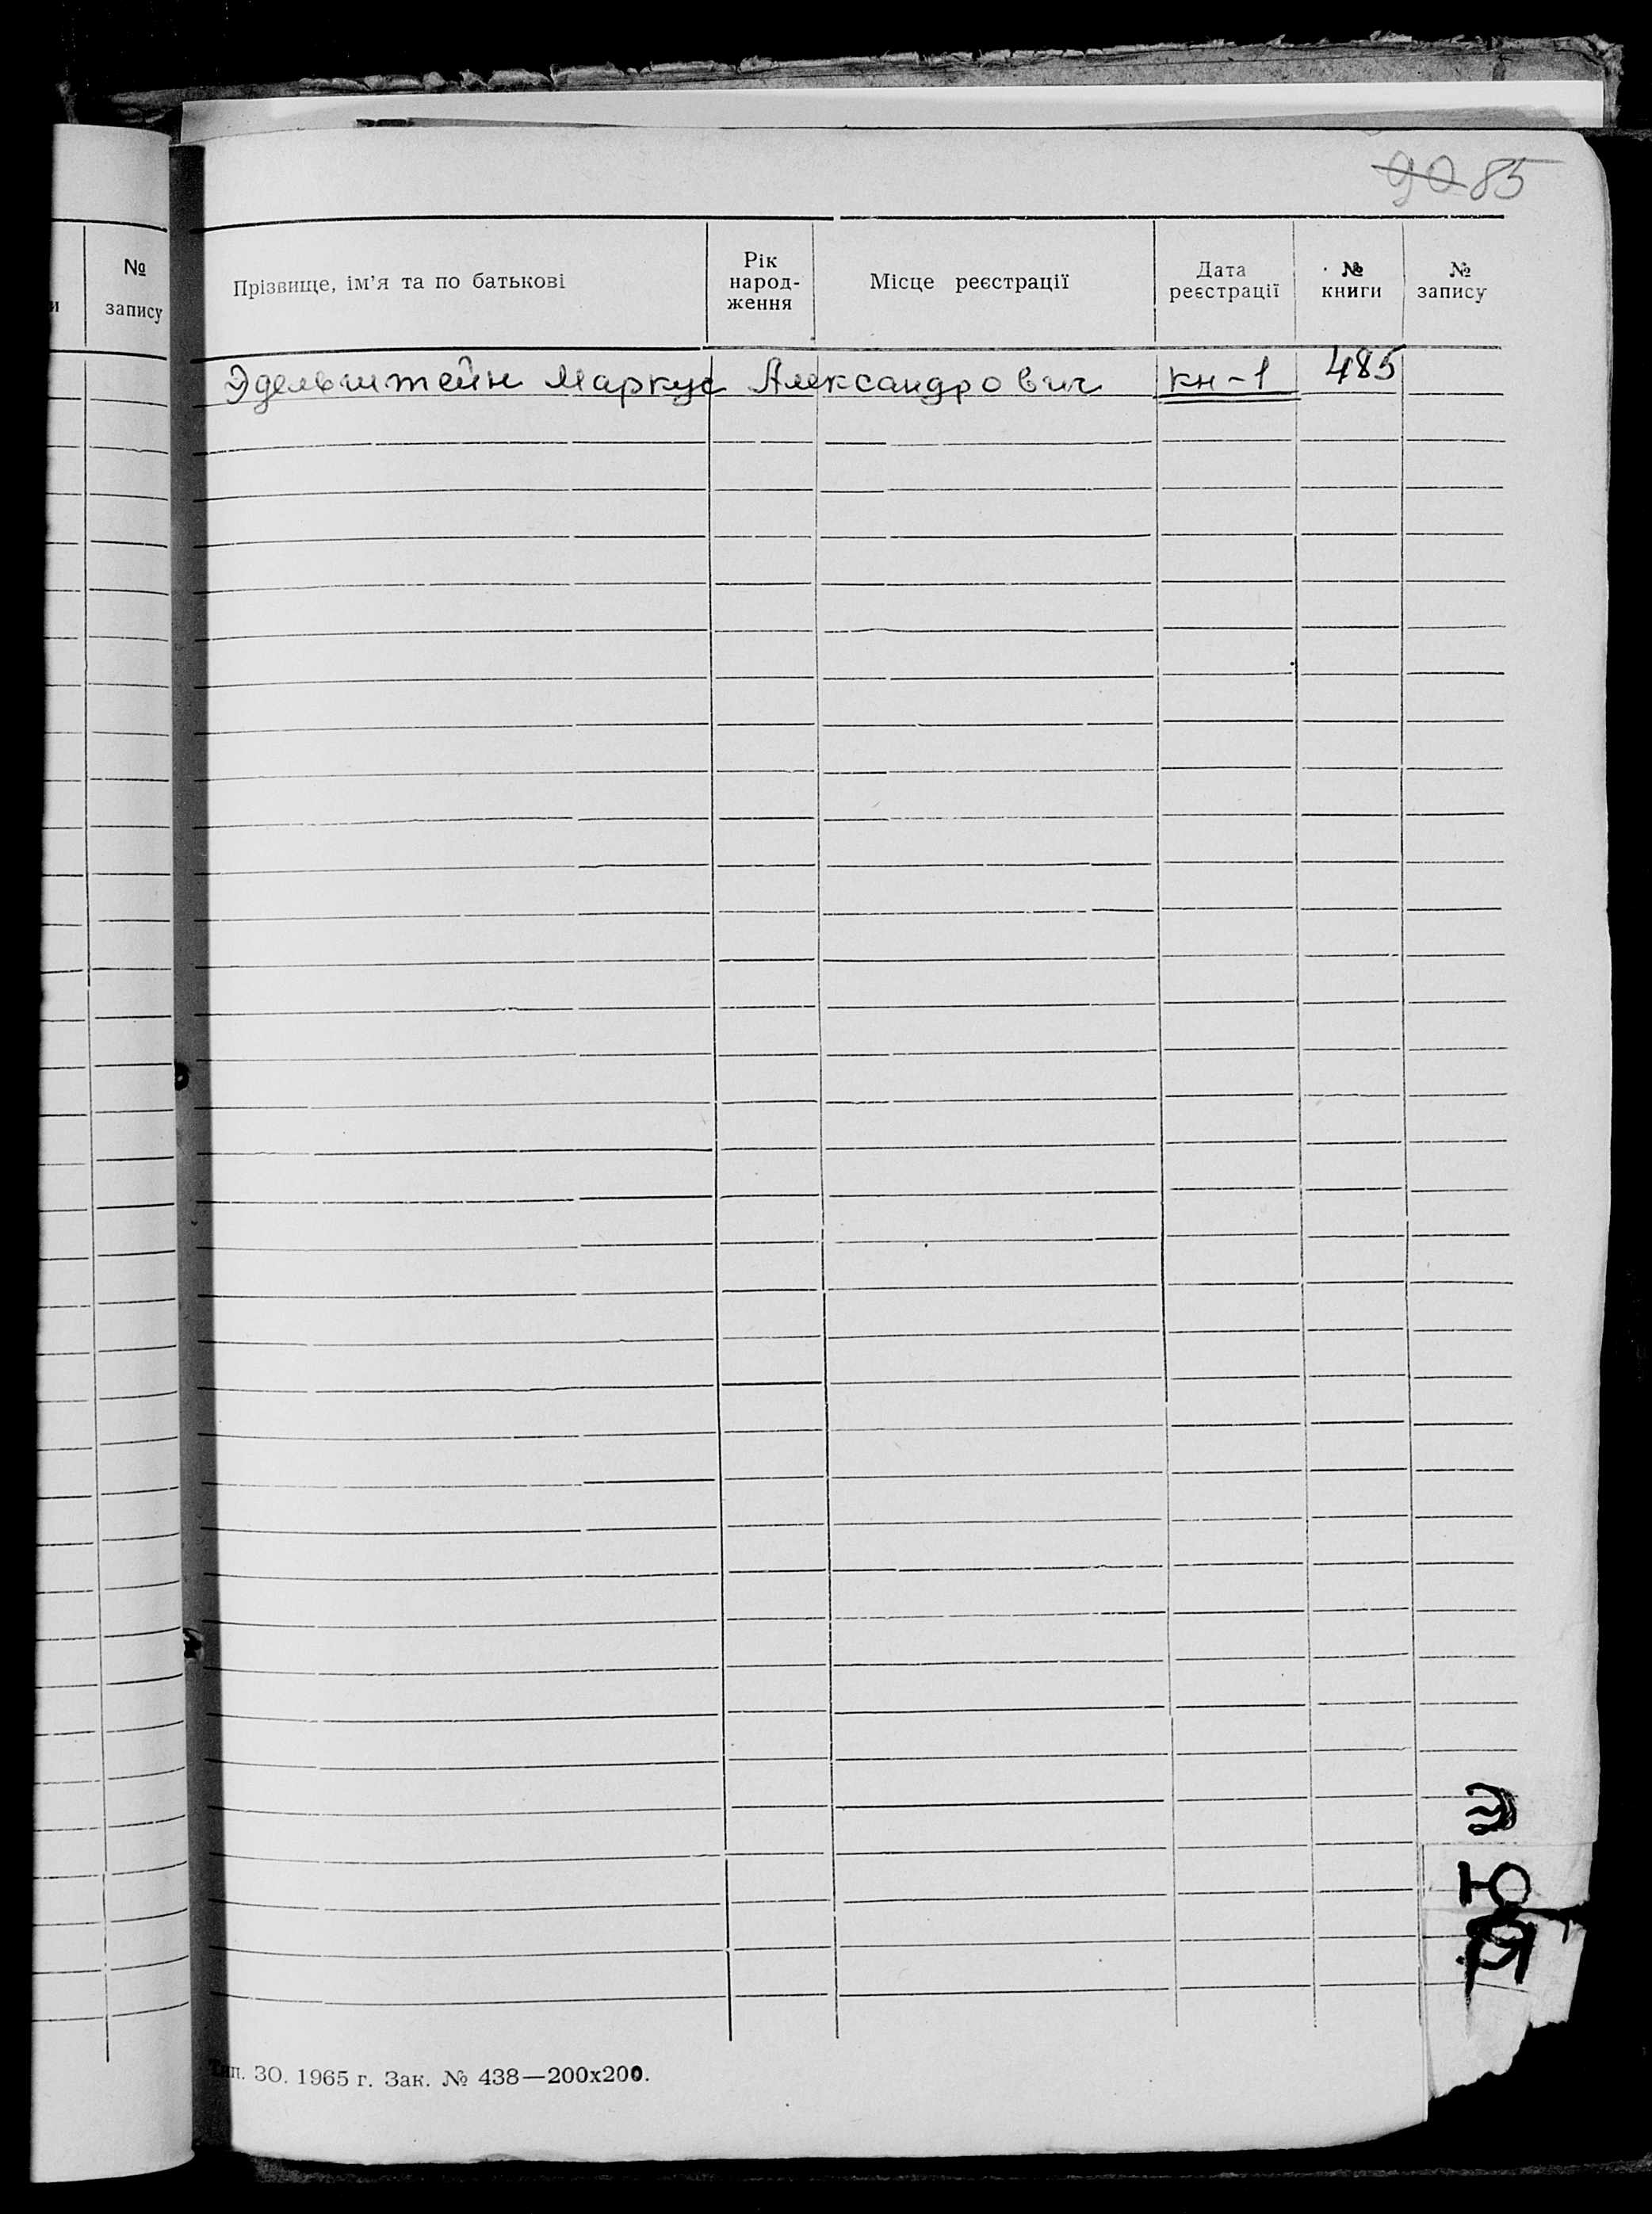 90 85
№ запису
Прізвище, ім'я та по батькові
Рік народ-ження
Місце реєстрації
Дата реєстрації
№ книги
№ запису
и
Эдельштейн Маркус Александрович кн-1 485
Э
Ю
Я
Тип. ЗО. 1965 г. Зак. № 438—200х200.